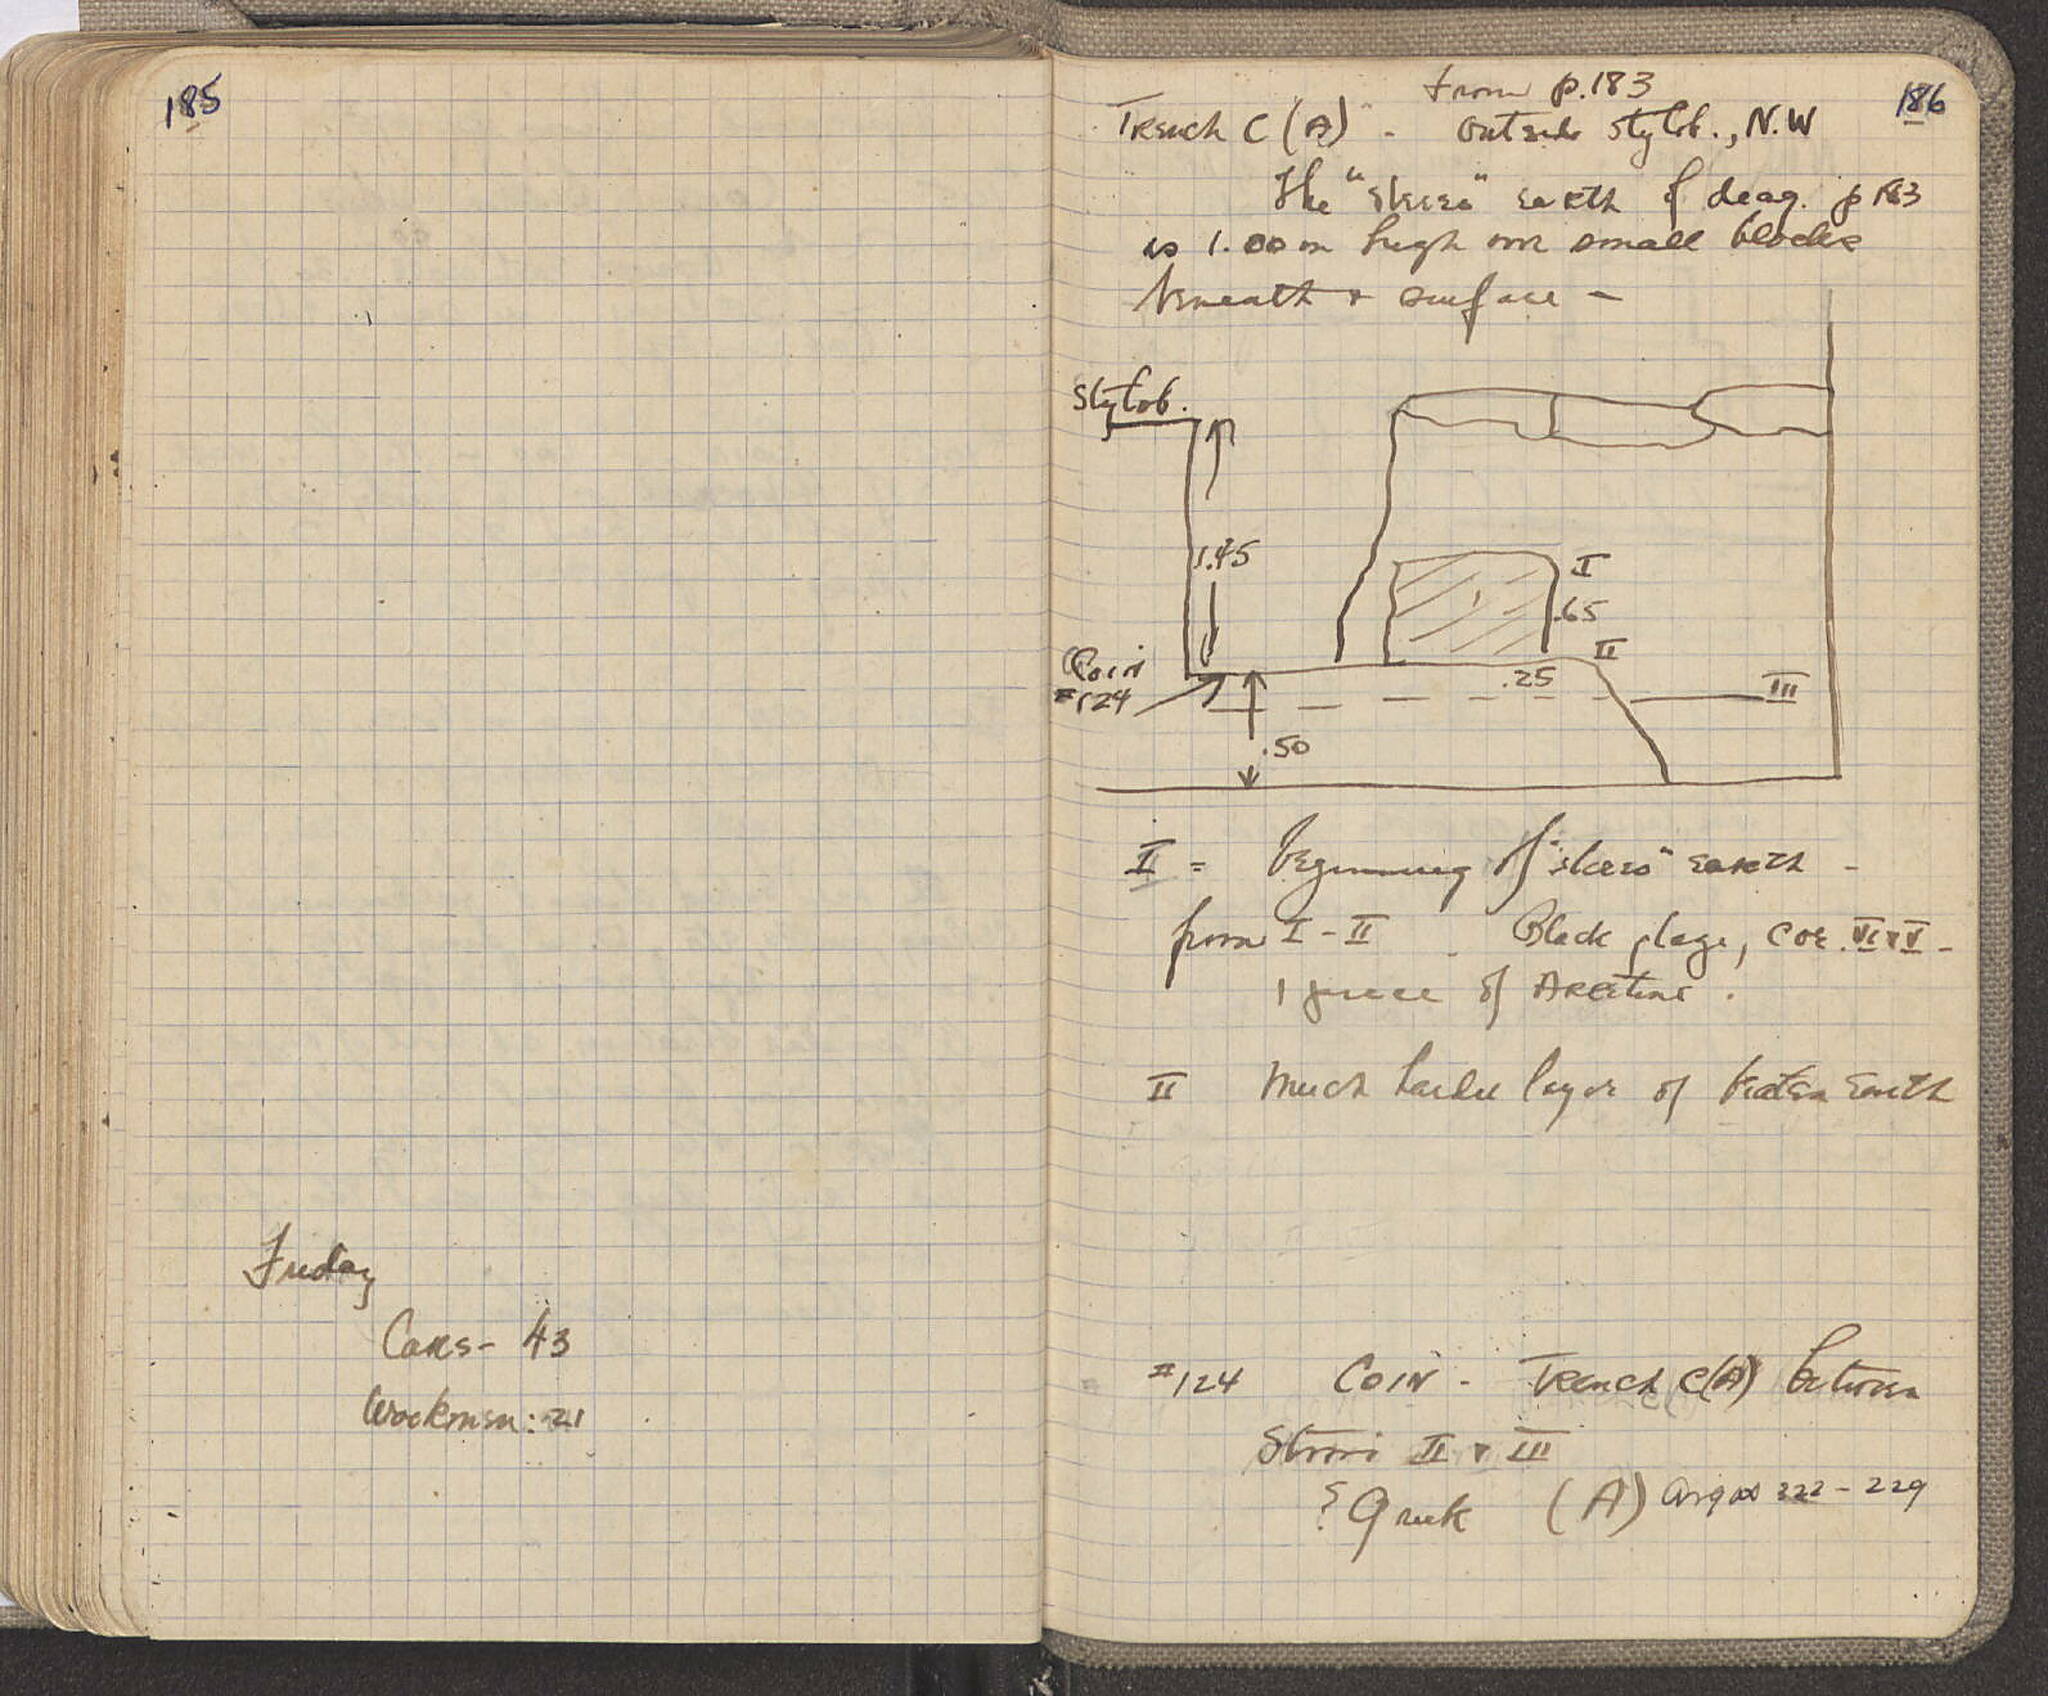 185
Friday
Cars - 43
Workmen: 21
186
from p. 183
Trench C (A) - Outside stylob., N.W
The "stereo" earth of diag. p 183
is 1.00 m high over small blocks
beneath + surface -
Stylob.
1.45
I
.65
II
Coin
#124
.25
III
.50
I = beginning of "stereo" earth -
from I - II - Black glaze, Cor. VI + V -
1 piece of Arretine.
II Much harder layer of beaten earth
#124 Coin - Trench C(A) between
Strosi II + III
? Greek (A) Argos 322 - 229